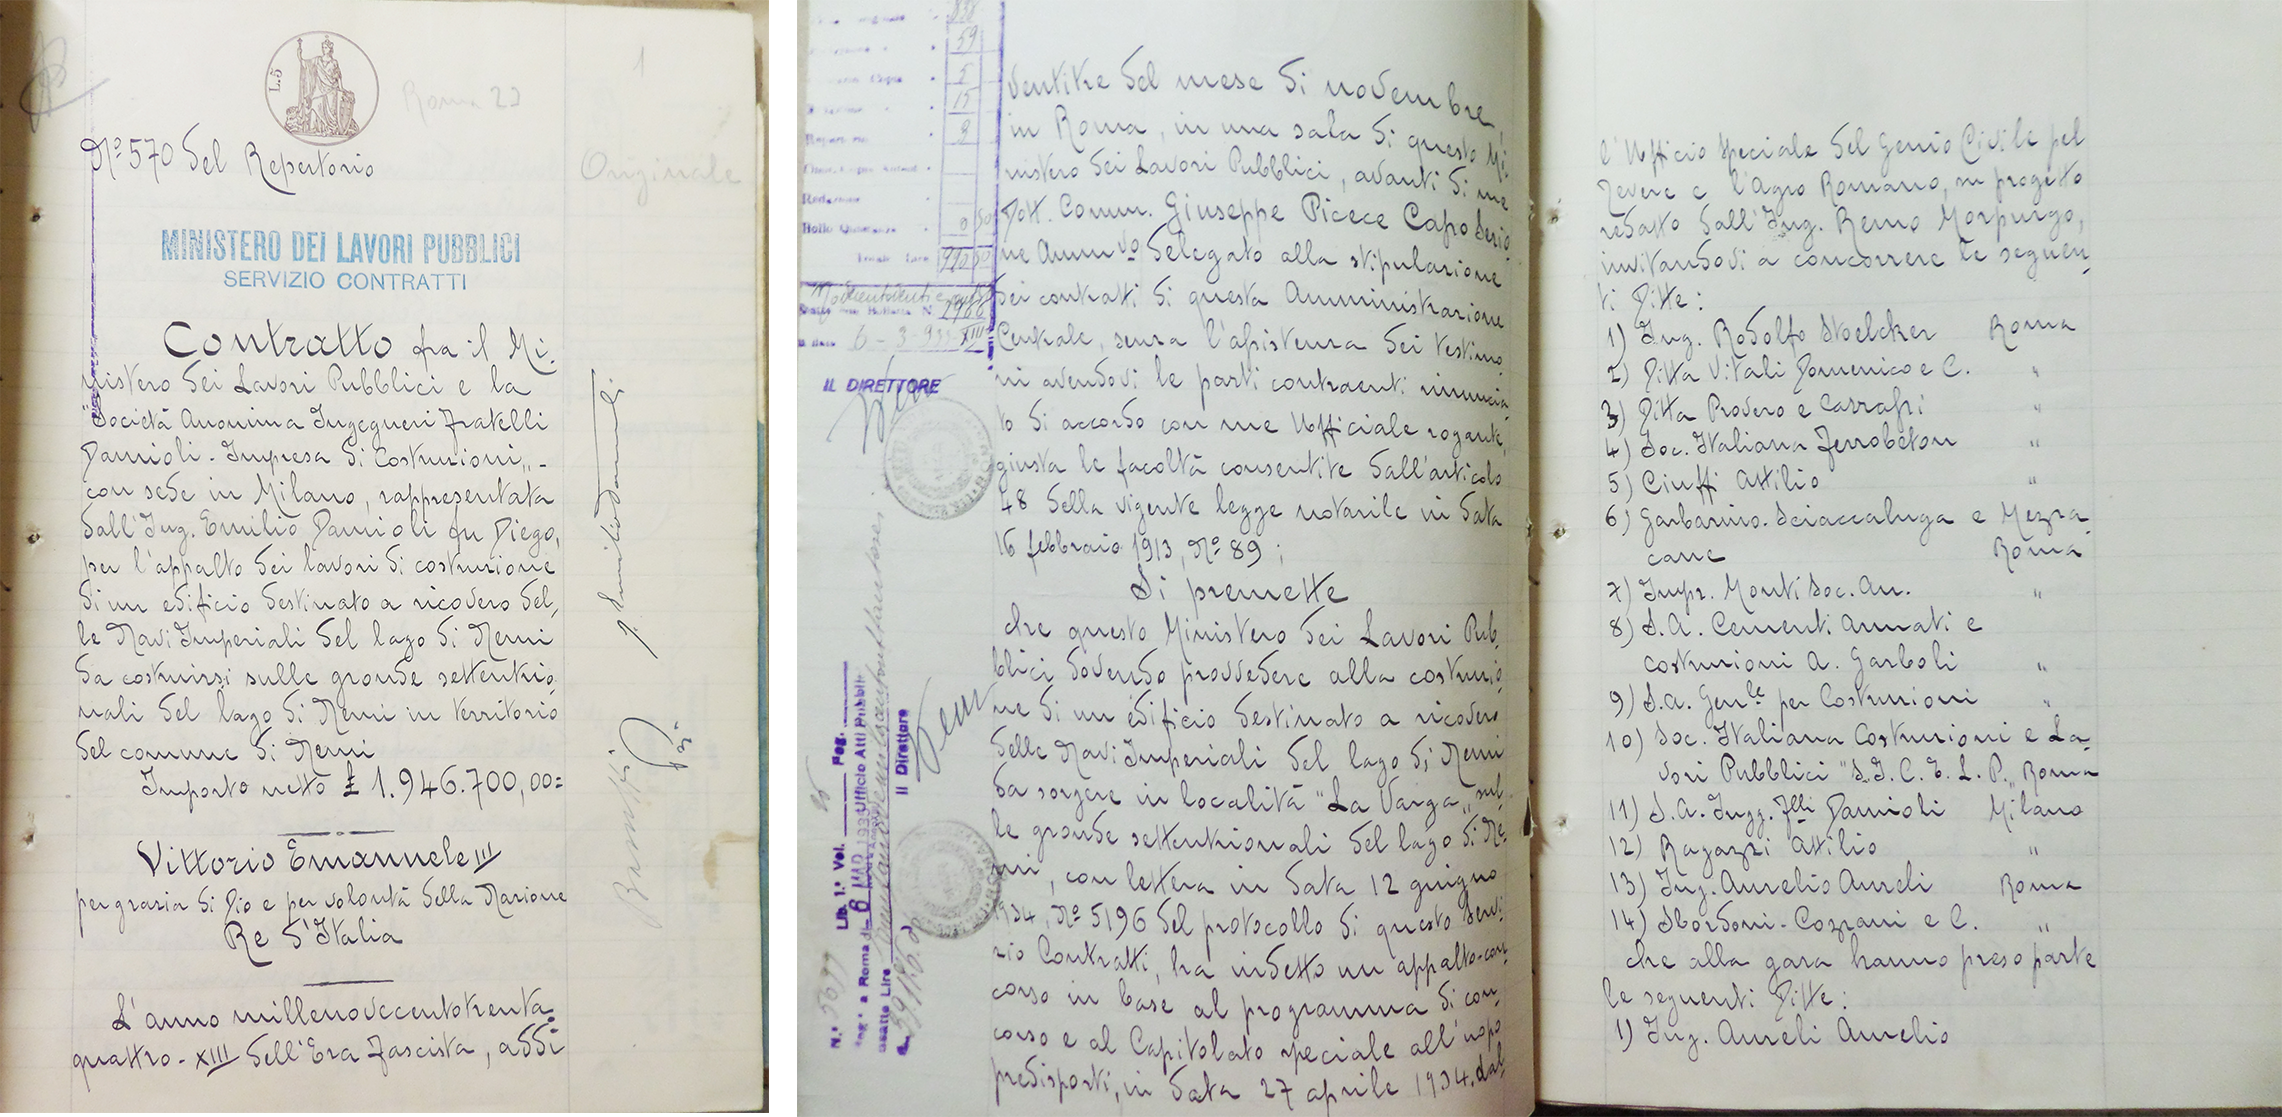 L.5
Roma 23
1
Nº 570 del Repertorio
Originale
MINISTERO DEI LAVORI PUBBLICI
SERVIZIO CONTRATTI
Contratto fra il Mi-
nistero dei Lavori Pubblici e la
"Società Anonima Ingegneri Fratelli
Damioli - Impresa di Costruzioni" -
con sede in Milano, rappresentata
dall'Ing. Emilio Damioli fu Diego,
per l'appalto dei lavori di costruzione
di un edificio destinato a ricovero del,
le Navi Imperiali del lago di Nemi
da costruirsi sulle gronde settentrio-
nali del lago di Nemi in territorio
del comune di Nemi
Importo netto £ 1.946.700,00=
Vittorio Emanuele III
per grazia di Dio e per volontà della Nazione
Re d'Italia
L'anno millenovecentotrenta-
quattro - XIII dell'Era Fascista, addì
838
59
5
15
3
Redazione
Bollo Quietanza 0 50
Totale Lire 920 50
2966
6 - 3 - 935 - XIII
IL DIRETTORE
Lib. 1º Vol. Pag.
a Roma di 6 MAR 1935 Ufficio Atti Pubblici
esatte Lire
Il Direttore
ventitre del mese di novembre,
in Roma, in una sala di questo Mi-
nistero dei Lavori Pubblici, avanti di me
Dott. Comm. Giuseppe Picece Capo Sezio
ne Ammvo delegato alla stipulazione
dei contratti di questa Amministrazione
Centrale, senza l'assistenza dei testimo
ni avendovi le parti contraenti rinuncia
to di accordo con me Ufficiale rogante,
giusta le facoltà consentite dall'articolo
48 della vigente legge notarile in data
16 febbraio 1913, Nº 89;
Si premette
che questo Ministero dei Lavori Pub,
blici dovendo provvedere alla costruzio,
ne di un edificio destinato a ricovero
delle Navi Imperiali del lago di Nemi
da sorgere in località "La Varga" sul,
le gronde settentrionali del lago di Ne,
mi, con lettera in data 12 giugno
1934, Nº 5196 del protocollo di questo Servi
zio Contratti, ha indetto un appalto-con
corso in base al programma di con,
corso e al Capitolato speciale all'uopo
predisposti, in data 27 aprile 1934, dal
l'Ufficio Speciale del Genio Civile pel
Tevere e l'Agro Romano, su progetto
redatto dall'Ing. Remo Morpurgo,
invitandovi a concorrere le seguen,
ti Ditte:
1) Ing. Rodolfo Stoelcker Roma
2) Ditta Vitali Domenico e C. "
3) Ditta Provera e Carrassi "
4) Soc. Italiana Ferrobeton "
5) Ciuffi Attilio "
6) Garbarino-Sciaccaluga e Mezza
cane Roma
7) Impr. Monti Soc. An. "
8) S.A. Cementi Armati e
costruzioni A. Garboli "
9) S.A. Genle per Costruzioni "
10) Soc. Italiana Costruzioni e La-
vori Pubblici "S.I.C.E.L.P." Roma
11) S.A. Ingg. Flli Damioli Milano
12) Ragazzi Attilio "
13) Ing. Aurelio Aureli Roma
14) Sbordoni-Cozzani e C. "
che alla gara hanno preso parte
le seguenti Ditte:
1) Ing. Aureli Aurelio